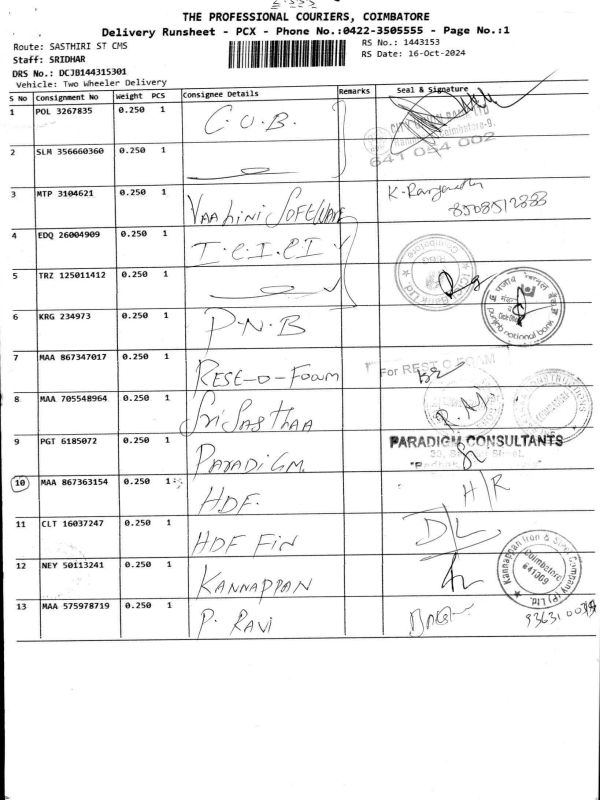 THE PROFESSIONAL COURIERS, COIMBATORE
Delivery Runsheet - PCX - Phone No.:0422-3505555 - Page No.:1
Route: SASTHIRI ST CMS
RS No.: 1443153
Staff: SRIDHAR
RS Date: 16-Oct-2024
DRS No.: DCJB144315301
Vehicle: Two Wheeler Delivery
S No Consignment No Weight PCS Consignee Details Remarks Seal & Signature
1 POL 3267835 0.250 1 C.U.B.
641 054 002
2 SLM 356660360 0.250 1
3 MTP 3104621 0.250 1 VAAhini SOFTWARE
8508512888
4 EDQ 26004909 0.250 1 I.C.I.CI
5 TRZ 125011412 0.250 1
6 KRG 234973 0.250 1 P.N.B
punjab national bank
7 MAA 867347017 0.250 1 REST-O-Foam
For REST O FOAM
8 MAA 705548964 0.250 1 Sri SASTHAA
9 PGT 6185072 0.250 1 PARADIGM.
PARADIGM CONSULTANTS
10 MAA 867363154 0.250 1 HDF.
H/R
11 CLT 16037247 0.250 1 HDF FiN
D/L
12 NEY 50113241 0.250 1 KANNAPPAN
Kannappan Iron & Steel Company (P) Ltd.
Coimbatore
641009
13 MAA 575978719 0.250 1 P. RAVI